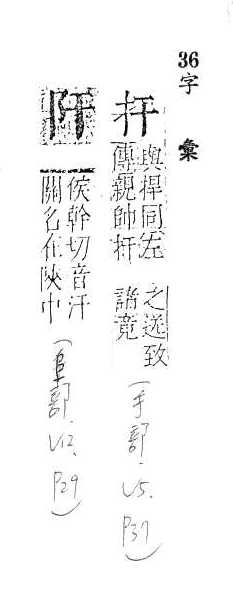 36字 彙
扞 與捍同左
傳親帥扞
之送致
諸竟
(手部. V5. P37)
䦎 侯幹切音汗
關名在陝中
(阜部. V12. P29)